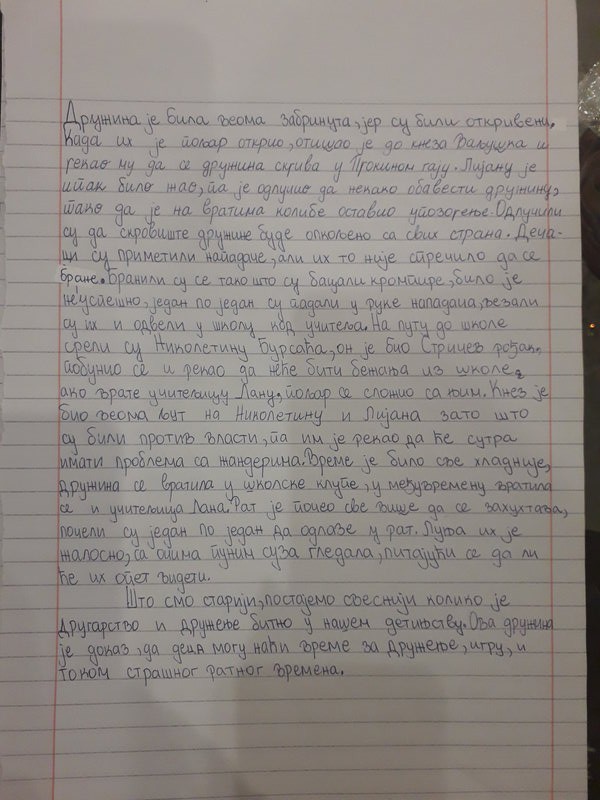 Дружина је била веома забринута, јер су били откривени.
Када их је пољар открио, отишао је до кнеза Ваљушка и
рекао му да се дружина скрива у Прокином гају. Лијану је
ипак било жао, па је одлучио да некако обавести дружину,
тако да је на вратима колибе оставио упозорење. Одлучили
су да скровиште дружине буде опкољено са свих страна. Деча-
ци су приметили нападаче, али их то није спречило да се
бране. Бранили су се тако што су бацали кромпире, било је
неуспешно, један по један су падали у руке нападача, везали
су их и одвели у школу код учитеља. На путу до школе
срели су Николетину Бурсаћа, он је био Стричев рођак,
побунио се и рекао да неће бити бежања из школе,
ако врате учитељицу Лану, пољар се сложио са њим. Кнез је
био веома љут на Николетину и Лијана зато што
су били против власти, па им је рекао да ће сутра
имати проблема са жандерима. Време је било све хладније,
дружина се вратила у школске клупе, у међувремену вратила
се и учитељица Лана. Рат је почео све више да се захуктава,
почели су један по један да одлазе у рат. Луња их је
жалосно, са очима пуним суза гледала, питајући се да ли
ће их опет видети.
Што смо старији, постајемо свеснији колико је
другарство и дружење битно у нашем детињству. Ова дружина
је доказ, да деца могу наћи време за дружење, игру, и
током страшног ратног времена.